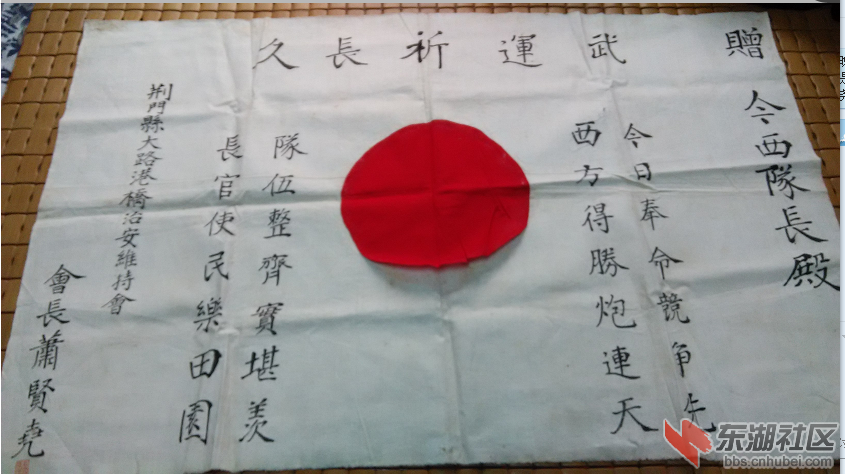 贈
今西隊長殿
武運祈長久
今日奉命競争先
西方得勝炮連天
隊伍整齊實堪羨
長官使民樂田園
荆門縣大路港橋治安維持會
會長蕭賢堯
东湖社区
bbs.cnhubei.com